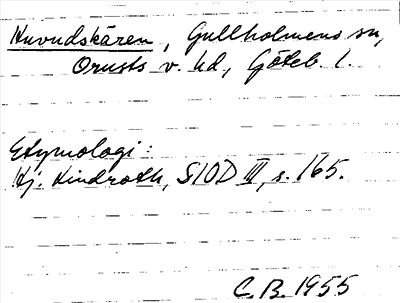 Huvudskären, Gullholmens sn,
Orusts v. hd, Göteb. l.
Etymologi:
Hj. Lindroth, SIOD III, s. 165.
C. B. 1955